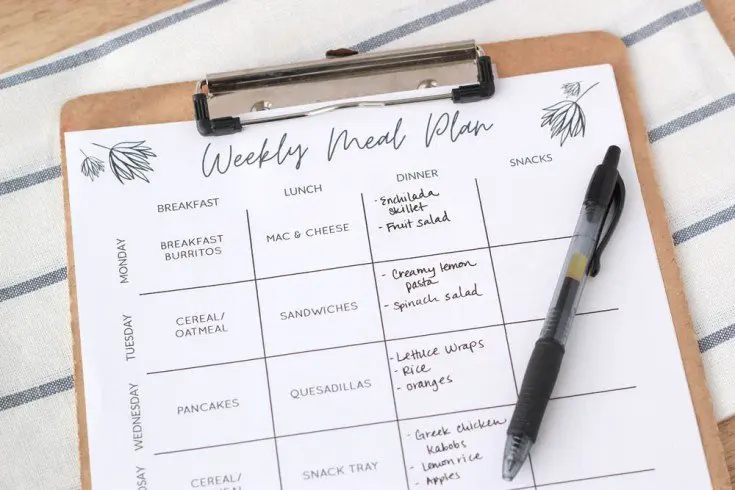 Weekly Meal Plan
BREAKFAST
LUNCH
DINNER
SNACKS
MONDAY
BREAKFAST
BURRITOS
MAC & CHEESE
- Enchilada
skillet
- Fruit salad
TUESDAY
CEREAL/
OATMEAL
SANDWICHES
- Creamy lemon
pasta
- Spinach salad
WEDNESDAY
PANCAKES
QUESADILLAS
- Lettuce Wraps
- Rice
- oranges
CEREAL/
SNACK TRAY
- Greek chicken
Kabobs
- Lemon rice
- Apples